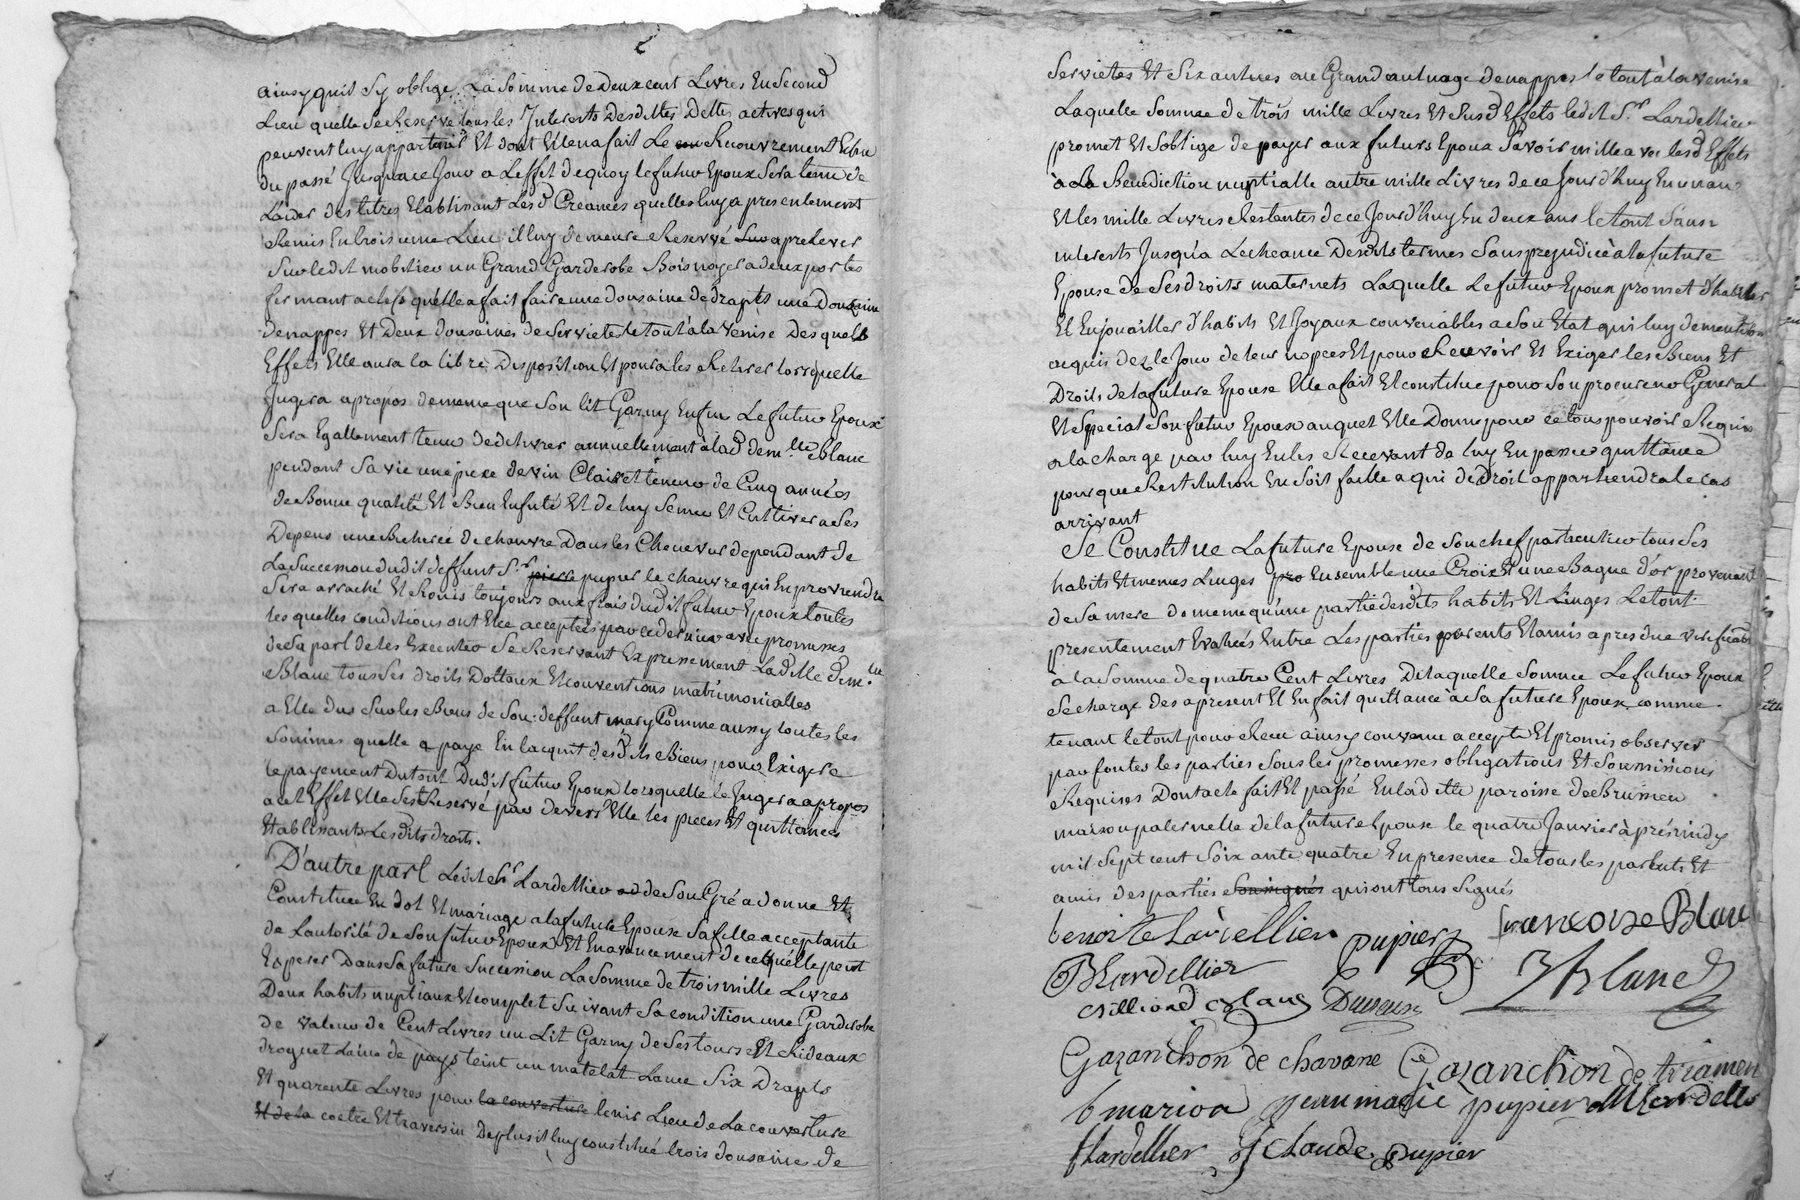 ainsy quil sy oblige La Somme de Deux cent Livres En Second
Lieu quelle se Reserve tous les Interests Desdittes Dettes actives qui
peuvent luy appartenir Et dont Elle na fait Le Recouvrement
du passé Jusqua ce Jour a Leffet de quoy le futur Epoux Sera tenu de
Laider des titres Etablissant Lesd Creances quelles luy a presentement
Remis En troisieme Lieu il luy demeure Reservé Sur aprelever
Sur ledit mobilier un Grand Garderobe Bois noyer a deux portes
fermant a clefs quelle a fait faire une dousaine de draps une Dousaine
de nappes Et Deux dousaines de Serviettes le tout a la Venise Desquels
Effets Elle aura la libre Disposition Et poura les Retirer lorsquelle
Jugera apropos de meme que Son lit Garny Enfin Le futur Epoux
Sera Egallement tenu de delivrer annuellement à lad demlle Blanc
pendant Sa vie une piece de vin Clairet teneur de Cinq années
de Bonne qualité Et Bien Enfuté Et de luy Semer Et Cultiver a Ses
Depens une Bicherée de chanvre Dans les Chenevier dependant de
La Succession dudit deffunt Sr pierre pupier le chanvre qui En proviendra
Sera arraché Et Rouis toujours aux frais dudit futur Epoux toutes
les quelles conditions ont Ete acceptées par ce dernier avec promesses
de Sa part de les Executer Se Reservant Expressement Ladille Demlle
Blanc tous Ses droits Dottaux Et conventions matrimonialles
a Elle dus Sur les Biens de Son deffunt mary Comme aussy toutes les
Sommes quelle a paye En lacquit desdits Biens pour Exiger
le payement Du tout Dudit futur Epoux lorsquelle le Jugera apropos
a cet Effet Elle Sest Reservé par devers Elle les pieces Et quittances
Etablissants Lesdits droits.
D'autre part Ledit Sr Lardellier de Son Gré a donne Et
Constitue En dot Et mariage a la future Epouse Sa fille acceptante
de Lautorité de Son futur Epoux Et En avancement de ce quelle peut
Esperer Dans Sa future Succession La Somme de trois mille Livres
Deux habits nuptiaux Et complet Suivant Sa condition une Garderobe
de valeur de Cent Livres un Lit Garny de Ses tours Et Rideaux
droguet Laine de pays teint un matelat Laine Six Drapts
Et quarente Livres pour la couverture tenir Lieu de La couverture
Et de la coetre Et traversin De plus il luy constitué trois dousaines de
Serviettes Et Six autres au Grand aulnage de nappes le tout à la venise
Laquelle Somme de trois mille Livres Et Susd Effets ledit Sr Lardellier
promet Et Soblige de payer aux futurs Epoux Savoir mille avec lesd Effets
à La Benediction nuptialle autre mille Livres de ce Jour d'huy En un an
Et les mille Livres Restantes de ce Jour d'huy En deux ans le tout Sans
interests Jusqua Lecheance Desdits termes Sans prejudice à la future
Epouse de Ses droits maternels Laquelle Le futur Epoux promet d'habiller
Et Enjouailler d'habits Et Joyaux convenables a Son Etat qui luy demeureront
acquis dez le Jour de leur nopces Et pour Recevoir Et Exiger les Biens Et
Droits de la future Epouse Elle a fait Et constitue pour Son procureur General
Et Special Son futur Epoux auquel Elle Donne pour ce tous pouvoir Requis
a la charge par luy En les Recevant de luy En passer quittance
pour que Restitution En Soit faitte a qui de droit appartiendra le cas
arrivant
Se Constitue La future Epouse de Son chef particulier tous Ses
habits Et menus Linges Ensemble une Croix Et une Bague d'or provenant
de Sa mere de meme qu'une partie desdits habits Et Linges Le tout
presentement Evalués Entre Les parties parents Et amis apres due verification
a la Somme de quatre Cent Livres De laquelle Somme Le futur Epoux
Se charge des apresent Et En fait quittance à Sa future Epouse comme
tenant le tout pour Receu ainsy convenu accepté Et promis observer
par toutes les parties Sous les promesses obligations Et Soumissions
Requises Dont acte fait Et passé En la ditte paroisse de Brussieu
maison paternelle de la future Epouse le quatre Janvier après midy
mil Sept cent Soixante quatre En presence de tous les parents Et
amis des parties Soussignés qui ont tous Signés
benoite Lardellier pupier francoise Blanc
B Lardellier J Blanc
Gazanchon de chavane Gazanchon de
b marion jeanmarie pupier
f lardellier j Claude pupier